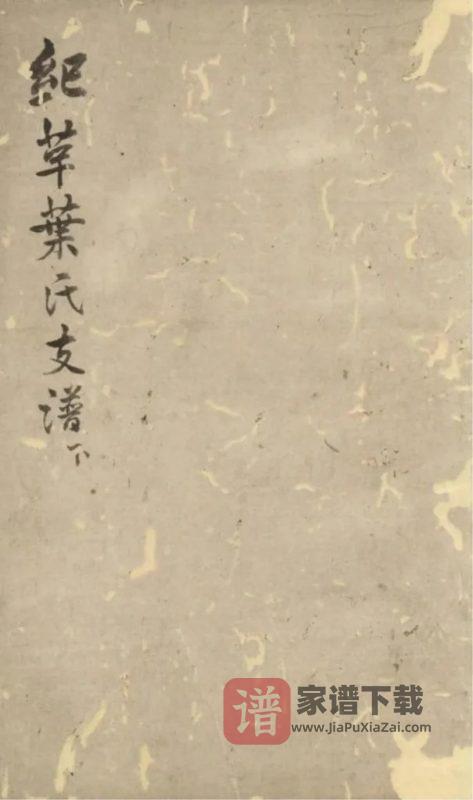 紀草葉氏支譜下
谱 家谱下载
www.JiaPuXiaZai.com